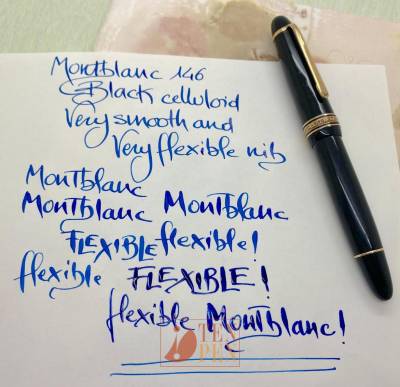 Montblanc 146
Black celluloid
Very smooth and
Very flexible nib
Montblanc
Montblanc Montblanc
FLEXIBLE flexible!
flexible FLEXIBLE!
flexible Montblanc!
TEN
PEN